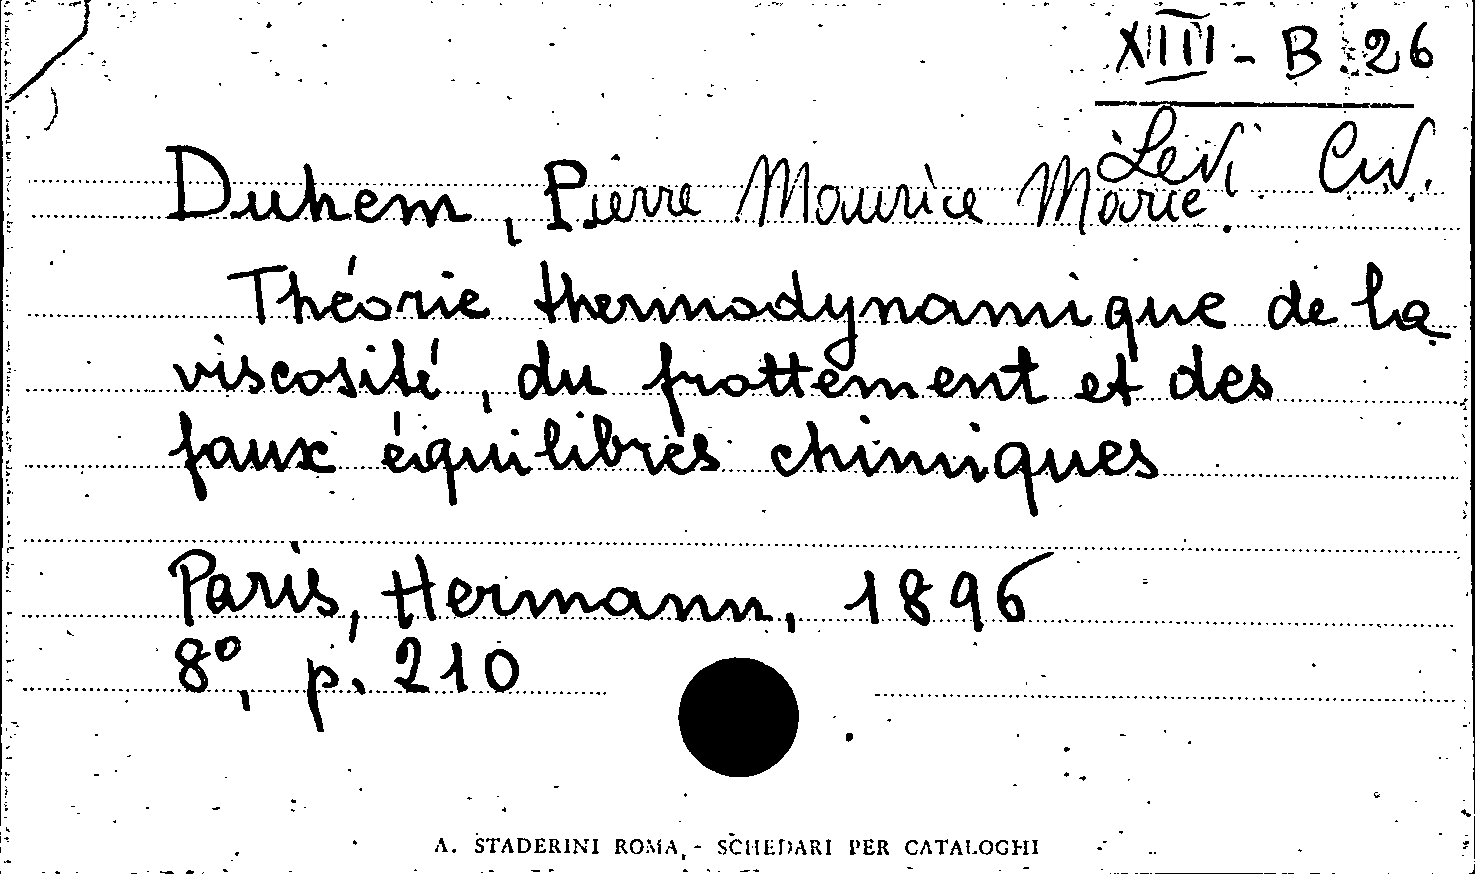 XIII - B 26
Levi Civ.
Duhem, Pierre Maurice Marie.
Théorie thermodynamique de la
viscosité, du frottement et des
faux équilibres chimiques
Paris, Hermann, 1896
8°, p. 210
A. STADERINI ROMA, - SCHEDARI PER CATALOGHI